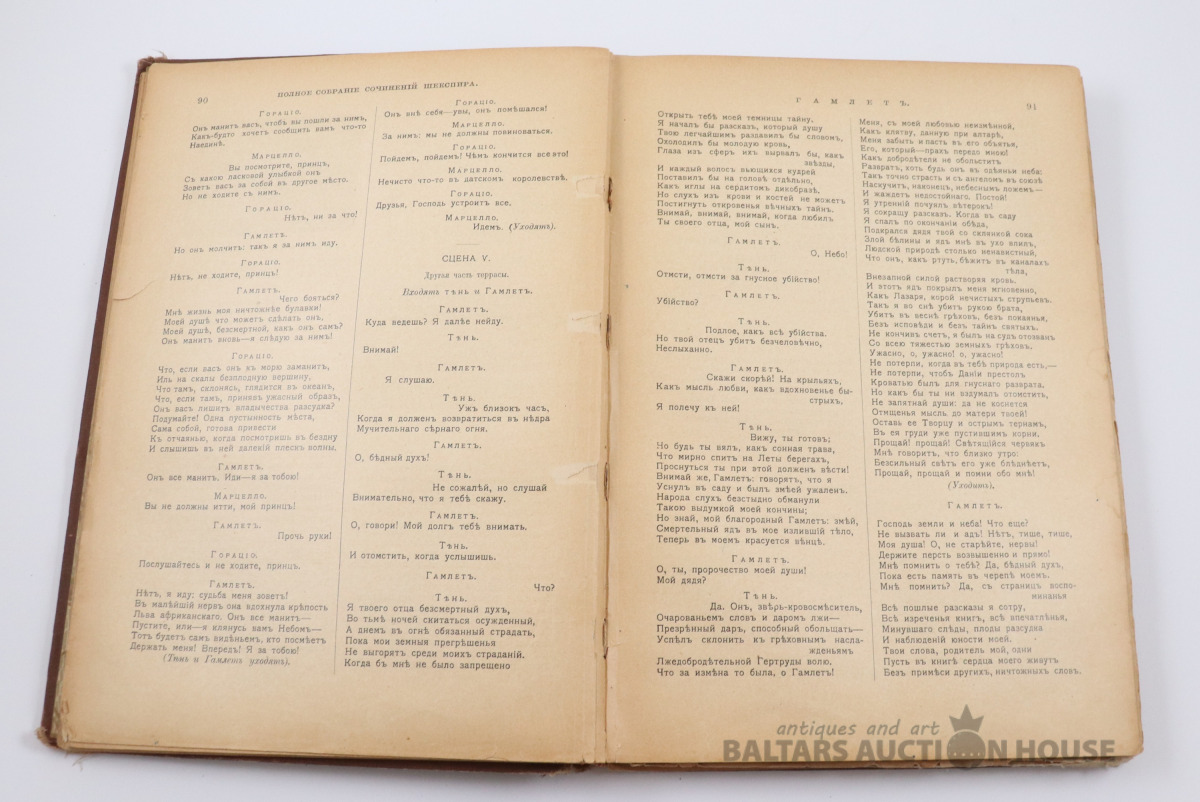 90
ПОЛНОЕ СОБРАНІЕ СОЧИНЕНІЙ ШЕКСПИРА.
Гораціо.
Онъ манитъ васъ, чтобъ вы пошли за нимъ,
Какъ-будто хочетъ сообщить вамъ что-то
Наединѣ.
Марцелло.
Вы посмотрите, принцъ,
Съ какою ласковой улыбкой онъ
Зоветъ васъ за собой въ другое мѣсто.
Но не ходите съ нимъ.
Гораціо.
Нѣтъ, ни за что!
Гамлетъ.
Но онъ молчитъ: такъ я за нимъ иду.
Гораціо.
Нѣтъ, не ходите, принцъ!
Гамлетъ.
Чего бояться?
Мнѣ жизнь моя ничтожнѣе булавки!
Моей душѣ что можетъ сдѣлать онъ,
Моей душѣ, безсмертной, какъ онъ самъ?
Онъ манитъ вновь—я слѣдую за нимъ!
Гораціо.
Что, если васъ онъ къ морю заманитъ,
Иль на скалы безплодную вершину,
Что тамъ, склонясь, глядится въ океанъ,
Что, если тамъ, принявъ ужасный образъ,
Онъ васъ лишитъ владычества разсудка?
Подумайте! Одна пустынность мѣста,
Сама собой, готова привести
Къ отчаянью, когда посмотришь въ бездну
И слышишь въ ней далекій плескъ волны.
Гамлетъ.
Онъ все манитъ. Иди—я за тобою!
Марцелло.
Вы не должны итти, мой принцъ!
Гамлетъ.
Прочь руки!
Гораціо.
Послушайтесь и не ходите, принцъ.
Гамлетъ.
Нѣтъ, я иду: судьба меня зоветъ!
Въ малѣйшій нервъ она вдохнула крѣпость
Льва африканскаго. Онъ все манитъ—
Пустите, или—я клянусь вамъ Небомъ—
Тотъ будетъ самъ видѣньемъ, кто посмѣетъ
Держать меня! Впередъ! Я за тобою!
(Тѣнь и Гамлетъ уходятъ).
Гораціо.
Онъ внѣ себя—увы, онъ помѣшался!
Марцелло.
За нимъ: мы не должны повиноваться.
Гораціо.
Пойдемъ, пойдемъ! Чѣмъ кончится все это!
Марцелло.
Нечисто что-то въ датскомъ королевствѣ.
Гораціо.
Друзья, Господь устроитъ все.
Марцелло.
Идемъ. (Уходятъ).
СЦЕНА V.
Другая часть террасы.
Входятъ тѣнь и Гамлетъ.
Гамлетъ.
Куда ведешь? Я далѣе нейду.
Тѣнь.
Внимай!
Гамлетъ.
Я слушаю.
Тѣнь.
Ужъ близокъ часъ,
Когда я долженъ возвратиться въ нѣдра
Мучительнаго сѣрнаго огня.
Гамлетъ.
О, бѣдный духъ!
Тѣнь.
Не сожалѣй, но слушай
Внимательно, что я тебѣ скажу.
Гамлетъ.
О, говори! Мой долгъ тебѣ внимать.
Тѣнь.
И отомстить, когда услышишь.
Гамлетъ.
Что?
Тѣнь.
Я твоего отца безсмертный духъ,
Во тьмѣ ночей скитаться осужденный,
А днемъ въ огнѣ обязанный страдать,
Пока мои земныя прегрѣшенья
Не выгорятъ среди моихъ страданій.
Когда бъ мнѣ не было запрещено
ГАМЛЕТЪ.
91
Открыть тебѣ моей темницы тайну,
Я началъ бы разсказъ, который душу
Твою легчайшимъ раздавилъ бы словомъ,
Охолодилъ бы молодую кровь,
Глаза изъ сферъ ихъ вырвалъ бы, какъ
звѣзды,
И каждый волосъ вьющихся кудрей
Поставилъ бы на головѣ отдѣльно,
Какъ иглы на сердитомъ дикобразѣ,
Но слухъ изъ крови и костей не можетъ
Постигнуть откровенья вѣчныхъ тайнъ.
Внимай, внимай, внимай, когда любилъ
Ты своего отца, мой сынъ.
Гамлетъ.
О, Небо!
Тѣнь.
Отмсти, отмсти за гнусное убійство!
Гамлетъ.
Убійство?
Тѣнь.
Подлое, какъ всѣ убійства.
Но твой отецъ убитъ безчеловѣчно,
Неслыханно.
Гамлетъ.
Скажи скорѣй! На крыльяхъ,
Какъ мысль любви, какъ вдохновенье бы-
стрыхъ,
Я полечу къ ней!
Тѣнь.
Вижу, ты готовъ;
Но будь ты вялъ, какъ сонная трава,
Что мирно спитъ на Леты берегахъ,
Проснуться ты при этой долженъ вѣсти!
Внимай же, Гамлетъ: говорятъ, что я
Уснулъ въ саду и былъ змѣей ужаленъ.
Народа слухъ безстыдно обманули
Такою выдумкой моей кончины;
Но знай, мой благородный Гамлетъ: змѣй,
Смертельный ядъ въ мое излившій тѣло,
Теперь въ моемъ красуется вѣнцѣ.
Гамлетъ.
О, ты, пророчество моей души!
Мой дядя?
Тѣнь.
Да. Онъ, звѣрь-кровосмѣситель,
Очарованьемъ словъ и даромъ лжи—
Презрѣнный даръ, способный обольщать—
Успѣлъ склонить къ грѣховнымъ насла-
жденьямъ
Лжедобродѣтельной Гертруды волю.
Что за измѣна то была, о Гамлетъ!
Меня, съ моей любовью неизмѣнной,
Какъ клятву, данную при алтарѣ,
Меня забыть и пасть въ его объятья,
Его, который—прахъ передо мною!
Какъ добродѣтели не обольститъ
Развратъ, хоть будь онъ въ одѣяньи неба:
Такъ точно страсть и съ ангеломъ въ союзѣ
Наскучитъ, наконецъ, небеснымъ ложемъ—
И жаждетъ недостойнаго. Постой!
Я утренній почуялъ вѣтерокъ!
Я сокращу разсказъ. Когда въ саду
Я спалъ по окончаніи обѣда,
Подкрался дядя твой со склянкой сока
Злой бѣлины и ядъ мнѣ въ ухо влилъ,
Людской природѣ столько ненавистный,
Что онъ, какъ ртуть, бѣжитъ въ каналахъ
тѣла,
Внезапной силой растворяя кровь.
И этотъ ядъ покрылъ меня мгновенно,
Какъ Лазаря, корой нечистыхъ струпьевъ.
Такъ я во снѣ убитъ рукою брата,
Убитъ въ веснѣ грѣховъ, безъ покаянья,
Безъ исповѣди и безъ тайнъ святыхъ.
Не кончивъ счетъ, я былъ на судъ отозванъ
Со всею тяжестью земныхъ грѣховъ.
Ужасно, о, ужасно! о, ужасно!
Не потерпи, когда въ тебѣ природа есть,—
Не потерпи, чтобъ Даніи престолъ
Кроватью былъ для гнуснаго разврата.
Но какъ бы ты ни вздумалъ отомстить,
Не запятнай души: да не коснется
Отмщенья мысль до матери твоей!
Оставь ее Творцу и острымъ тернамъ,
Въ ея груди уже пустившимъ корни.
Прощай! прощай! Свѣтящійся червякъ
Мнѣ говоритъ, что близко утро:
Безсильный свѣтъ его уже блѣднѣетъ,
Прощай, прощай и помни обо мнѣ!
(Уходитъ).
Гамлетъ.
Господь земли и неба! Что еще?
Не вызвать ли и адъ! Нѣтъ, тише, тише,
Моя душа! О, не старѣйте, нервы!
Держите персть возвышенно и прямо!
Мнѣ помнить о тебѣ? Да, бѣдный духъ,
Пока есть память въ черепѣ моемъ.
Мнѣ помнить? Да, съ страницъ воспо-
минанья
Всѣ пошлые разсказы я сотру,
Всѣ изреченья книгъ, всѣ впечатлѣнья,
Минувшаго слѣды, плоды разсудка
И наблюденій юности моей.
Твои слова, родитель мой, одни
Пусть въ книгѣ сердца моего живутъ
Безъ примѣси другихъ, ничтожныхъ словъ.
antiques and art
BALTARS AUCTION HOUSE